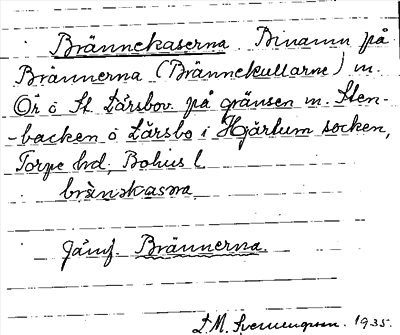 Brännekaserna Binamn på
Brännerna (Brännekullarne) m.
Ör ö St. Lärsbov. på gränsen m. Sten-
-backen ö Lärsbo i Hjärtum socken,
Torpe hd, Bohus l.
brænəkasəɳa
Jämf. Brännerna.
1935.